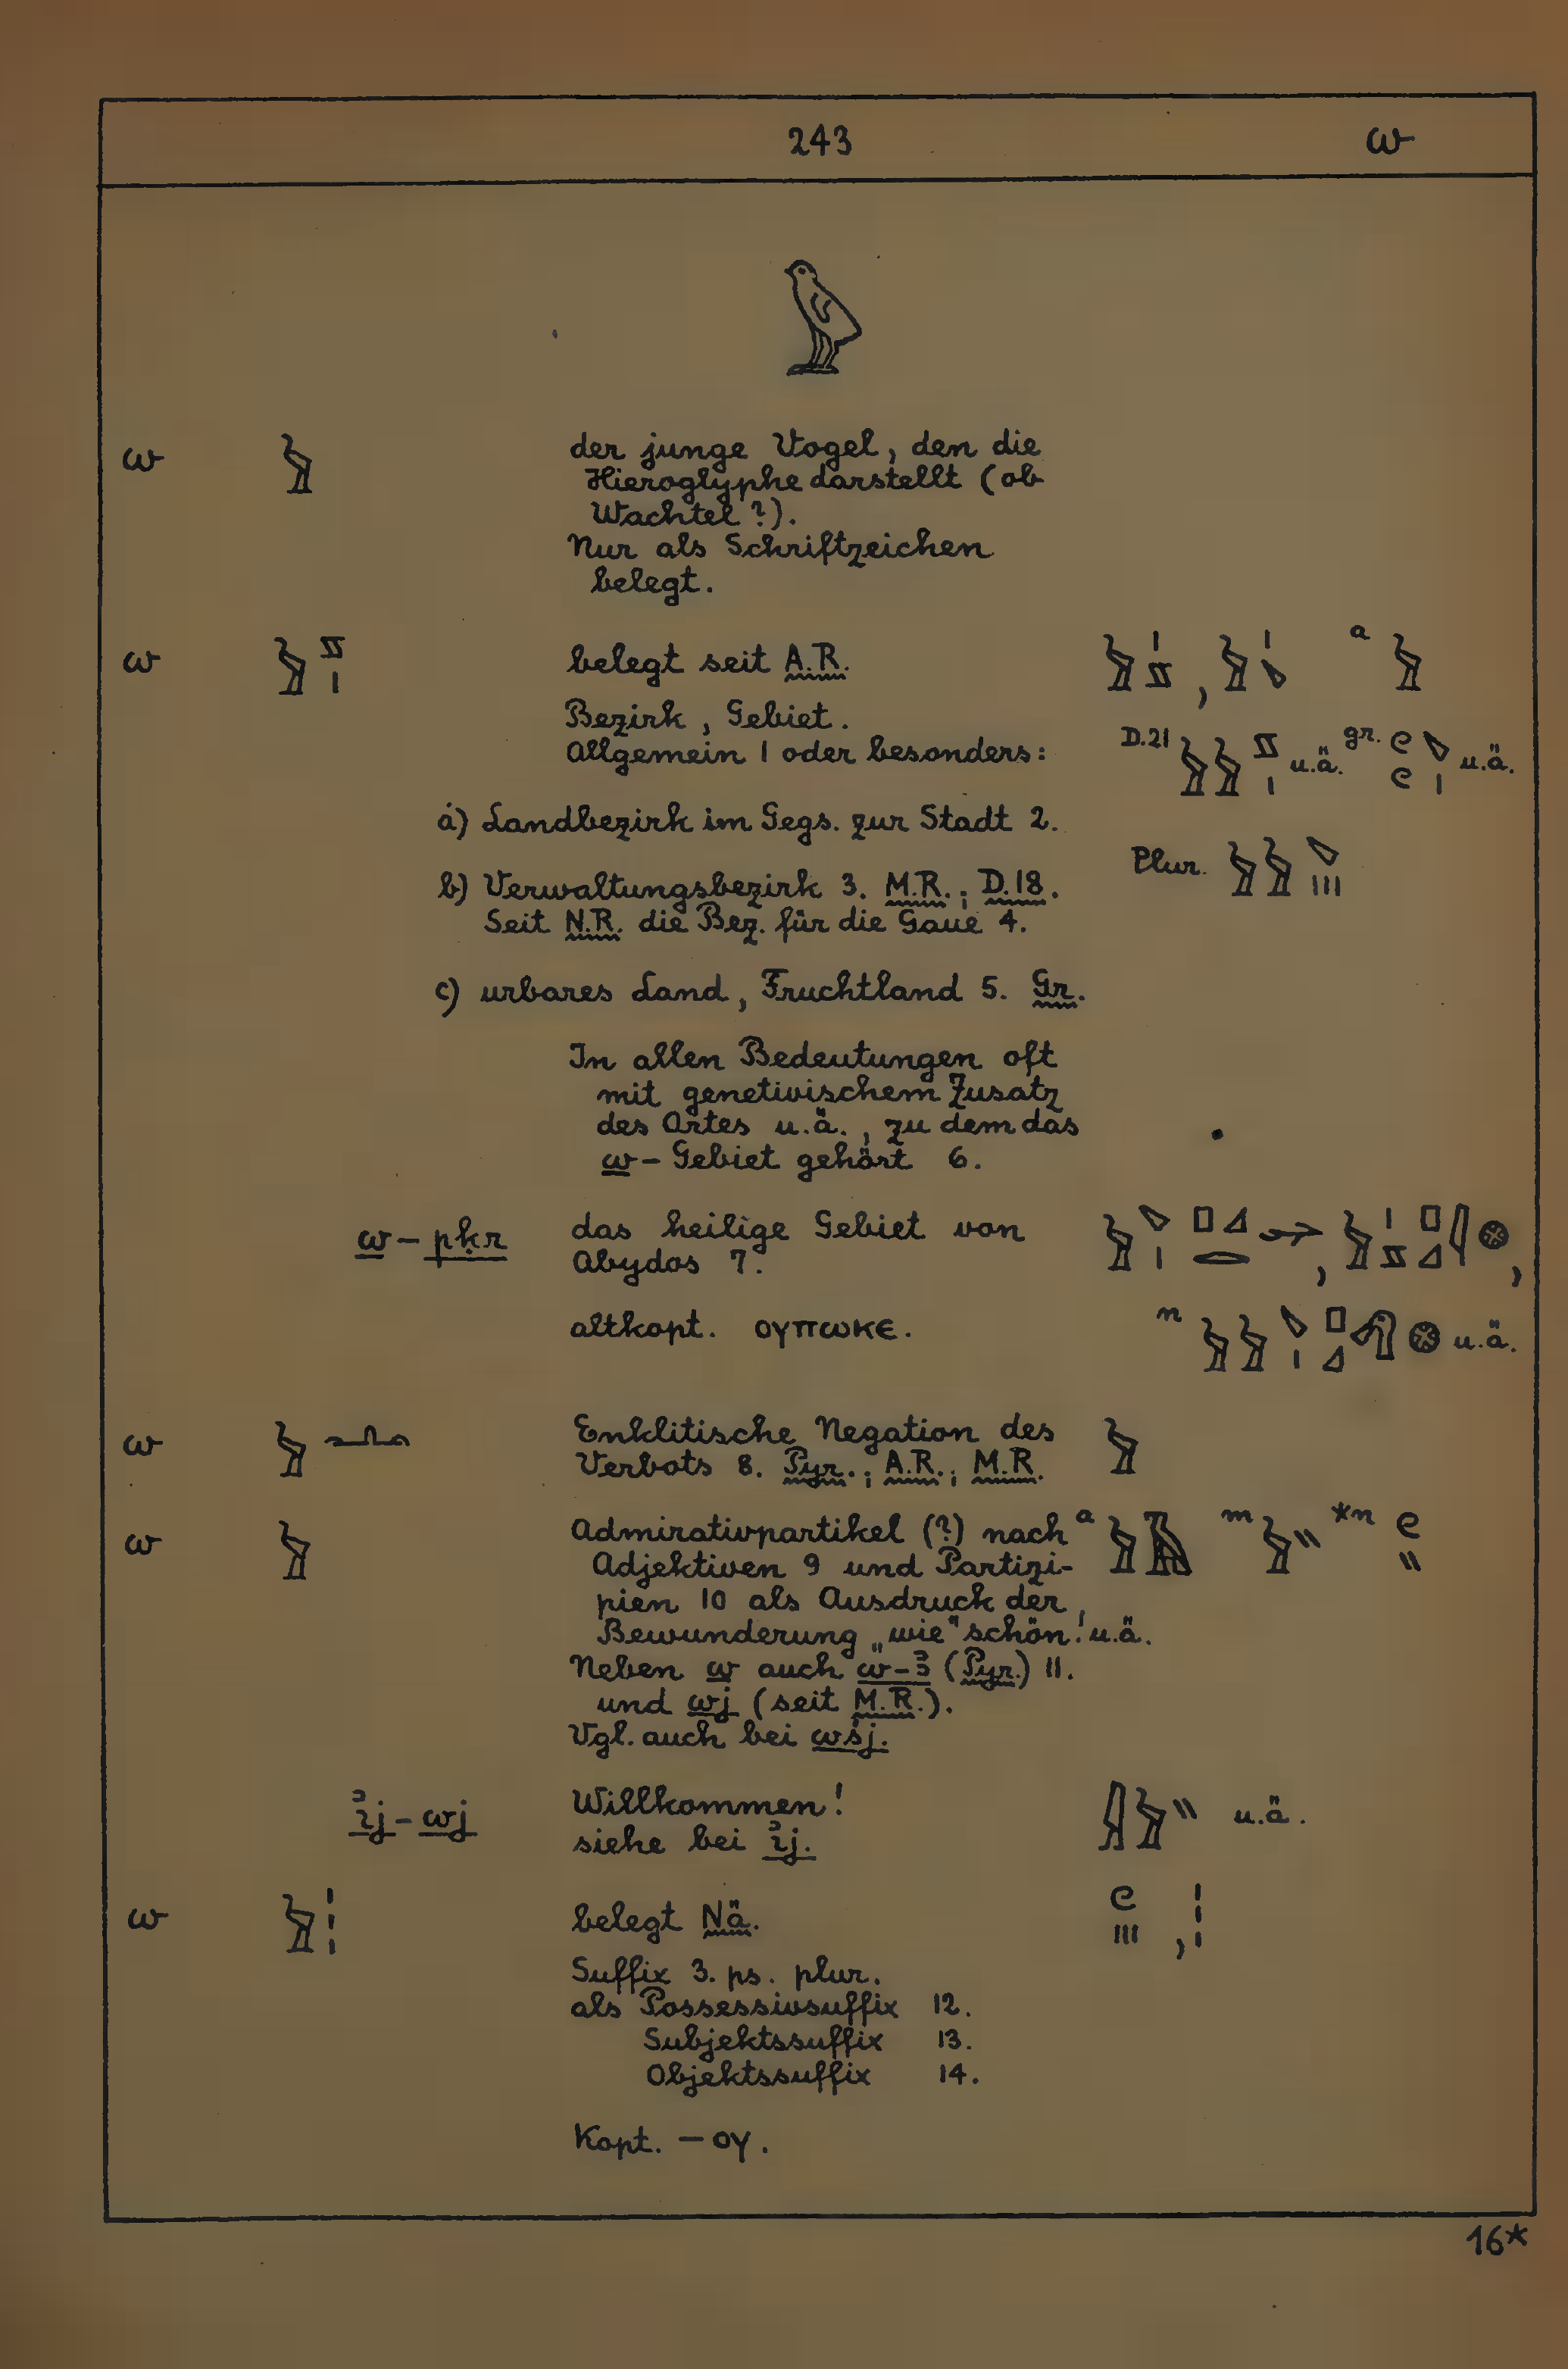 243 w
w 𓅱 der junge Vogel, den die
Hieroglyphe darstellt (ob
Wachtel ?).
Nur als Schriftzeichen
belegt.
w belegt seit A.R. a
Bezirk, Gebiet.
Allgemein 1 oder besonders: D.21 u.ä. gr. u.ä.
a) Landbezirk im Gegs. zur Stadt 2.
Plur.
b) Verwaltungsbezirk 3. M.R.; D.18.
Seit N.R. die Bez. für die Gaue 4.
c) urbares Land, Fruchtland 5. Gr.
In allen Bedeutungen oft
mit genetivischem Zusatz
des Ortes u.ä., zu dem das
w-Gebiet gehört 6.
w-pḳr das heilige Gebiet von
Abydos 7.
altkopt. ⲟⲩⲡⲱⲕⲉ. n u.ä.
w Enklitische Negation des 𓅱
Verbots 8. Pyr.; A.R.; M.R.
w 𓅱 Admirativpartikel (?) nach a m *n
Adjektiven 9 und Partizi-
pien 10 als Ausdruck der
Bewunderung „wie" schön! u.ä.
Neben w auch w-ꜣ (Pyr.) 11.
und wj (seit M.R.).
Vgl. auch bei wśj.
ꞽj-wj Willkommen! u.ä.
siehe bei ꞽj.
w belegt Nä.
Suffix 3. ps. plur.
als Possessivsuffix 12.
Subjektssuffix 13.
Objektssuffix 14.
Kopt. -ⲟⲩ.
16*